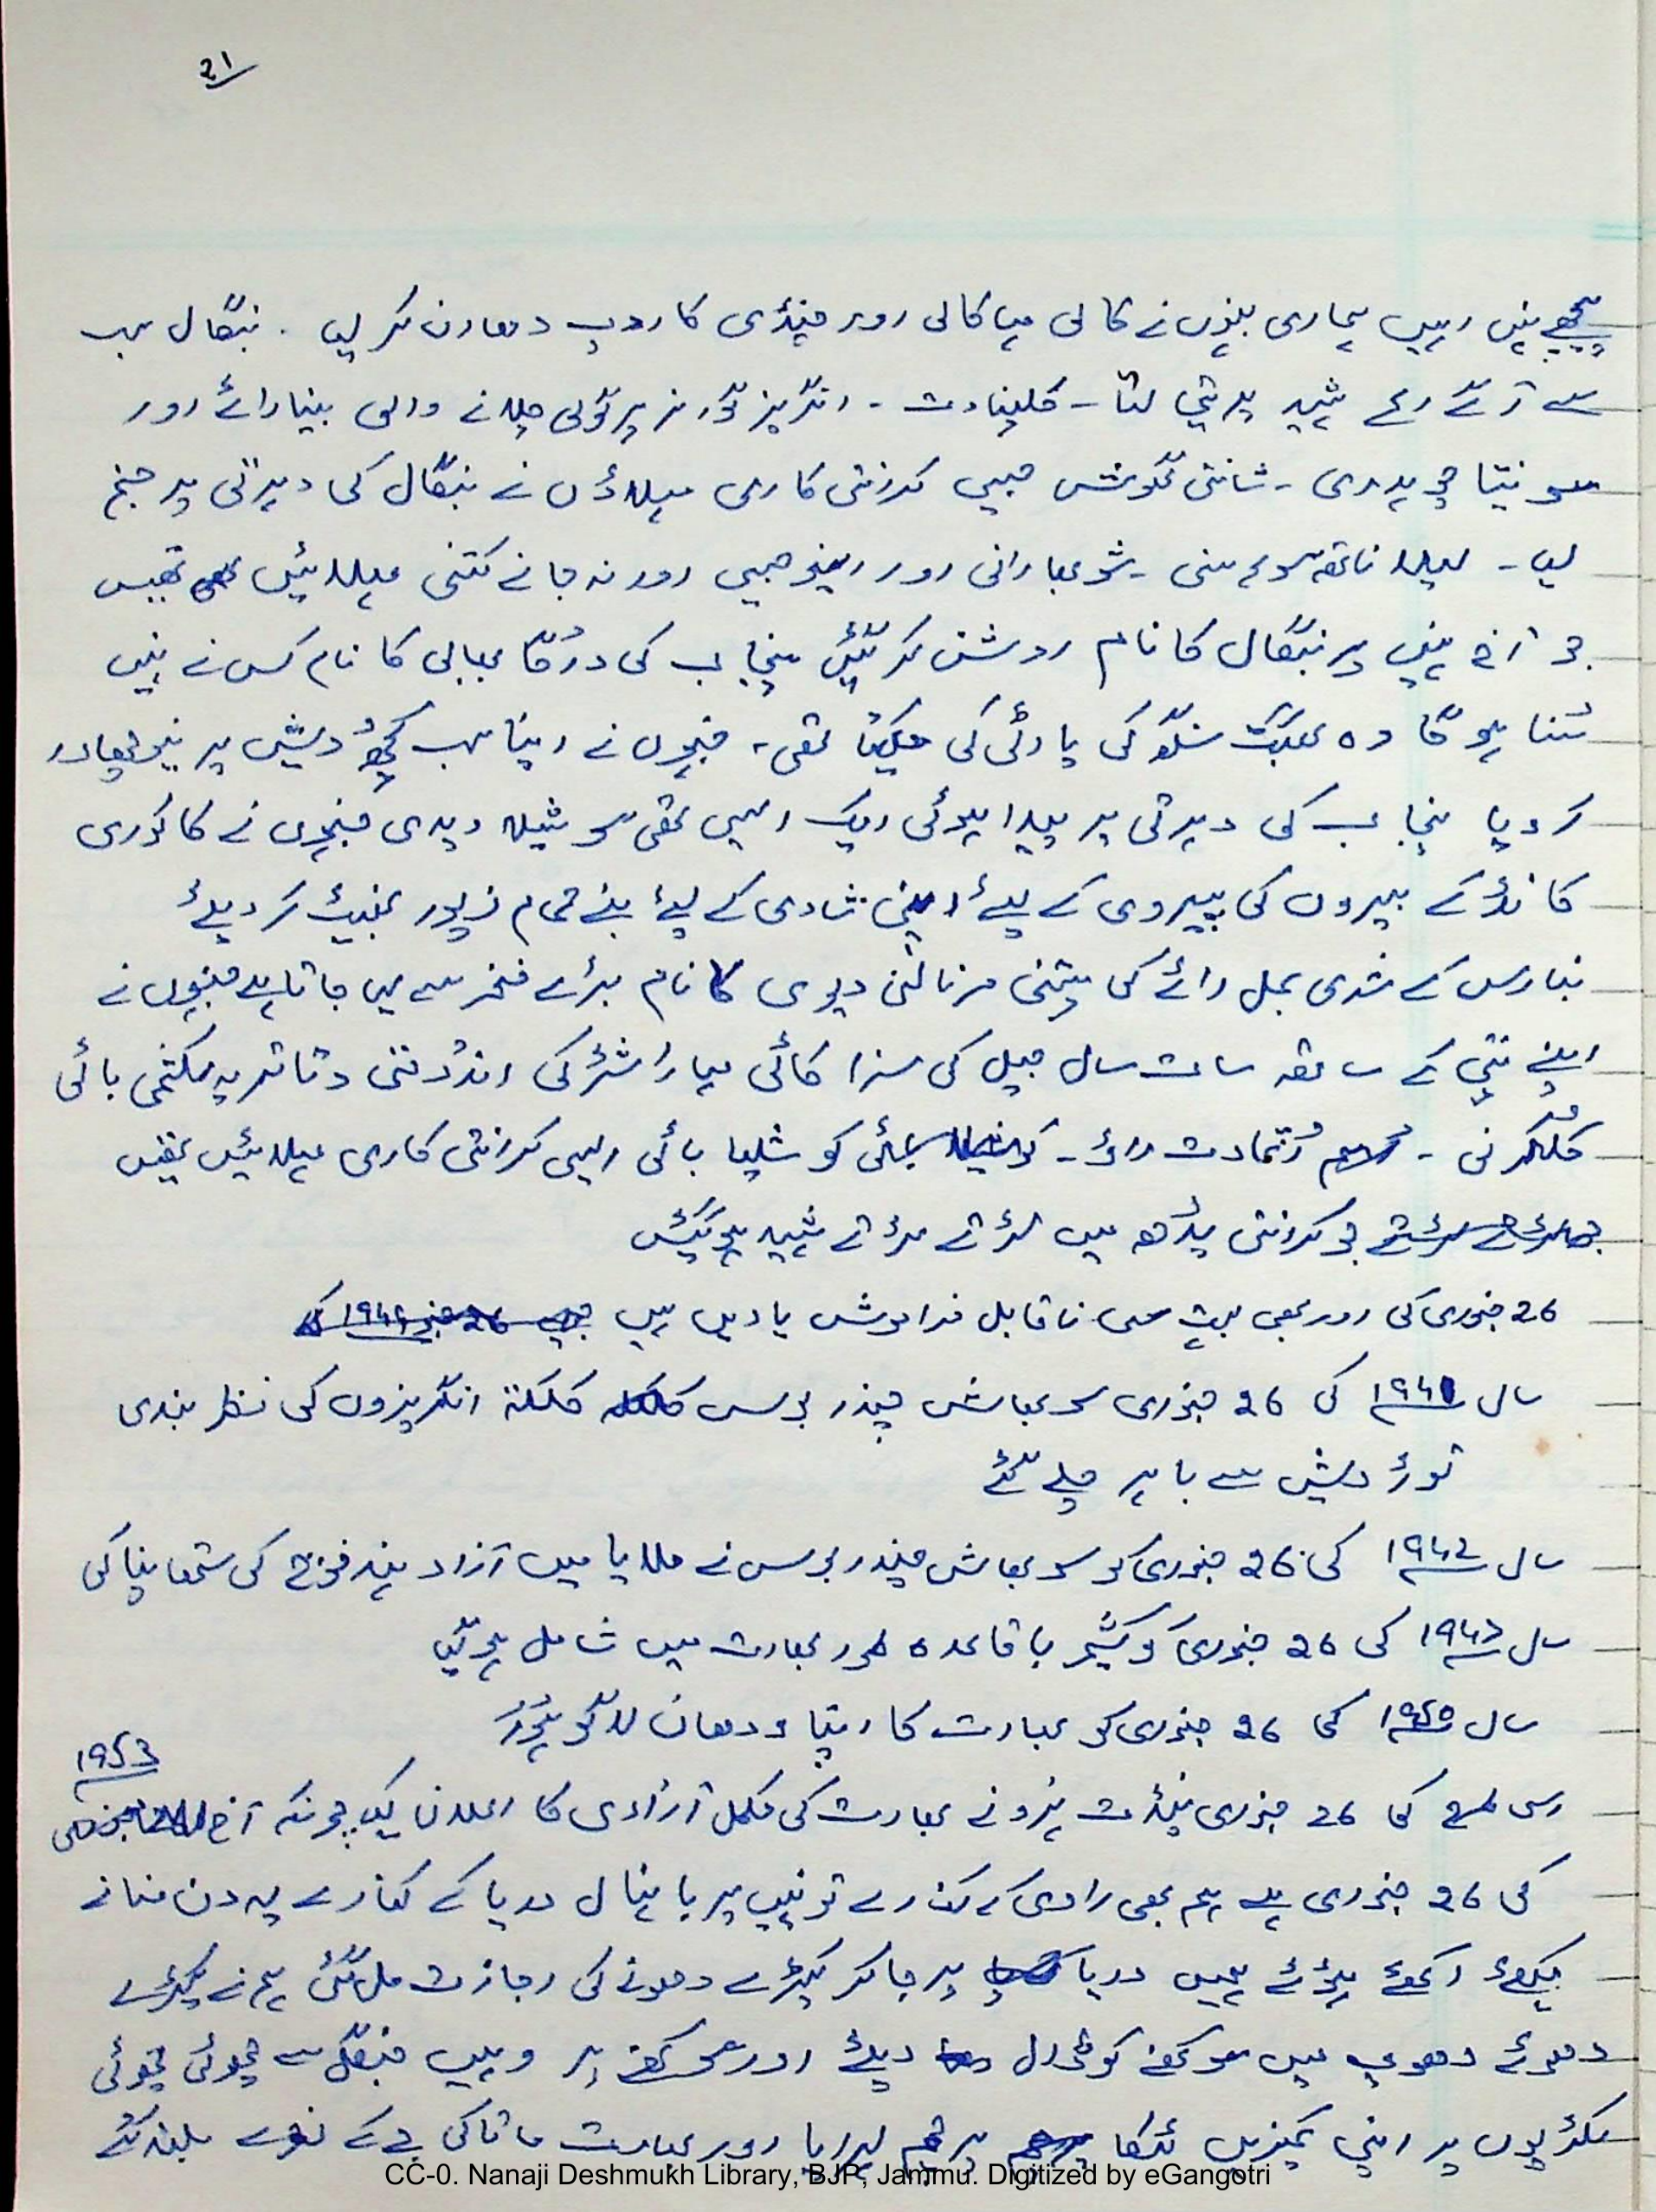 21
پیچھے نہیں رہیں ہماری بہنوں نے کالی مہا کالی اور چنڈی کا روپ دھارن کر لیا ۔ بنگال سب
سے آگے رہا شہید پریتی لتا ۔ کلپنا دت ۔ انگریز گورنر پر گولی چلانے والی بینا رائے اور
سونیتا چوہدری ۔ شانتی گھوش جیسی کرانتی کاری مہلاؤں نے بنگال کی دھرتی پر جنم
لیا ۔ لیلا ناتھ سوہاسنی ۔ شوبھا رانی اور رینو جیسی اور نہ جانے کتنی مہلائیں تھیں
جو آج نہیں پر بنگال کا نام روشن کر گئیں پنجاب کی دُرگا بھابی کا نام کس نے نہیں
سُنا ہوگا وہ بھگت سنگھ کی پارٹی کی تھی ، جنہوں نے اپنا سب کچھ دیش پر نیچھاور
کر دیا پنجاب کی دھرتی پر پیدا ہوئی ایک ایسی تھی سوشیلا دیدی جنہوں نے کاکوری
کانڈ کے بیروں کی پیروی کے لیۓ اپنی شادی کے لیۓ بنے تمام زیور بھینٹ کر دیۓ
بنارس کے شری بمل رائے کی پتنی مرنالنی دیوی کا نام بڑے فخر سے لیا جاتا ہے جنہوں نے
اپنے پتی کے ساتھ سات سال جیل کی سزا کاٹی مہاراشٹر کی اندُومتی دتاتریہ لکشمی بائی
کلکرنی ۔ اُتمادت راؤ ۔ کوشلیا بائی ایسی کرانتی کاری مہلائیں تھیں
جو کرانتی یُدھ میں لڑتے لڑتے شہید ہو گئیں
26 جنوری کی اور بھی بہت سی ناقابل فراموش یادیں ہیں
سال ۱۹۴۱ کی 26 جنوری سوبھاش چندر بوس کلکتہ انگریزوں کی نظر بندی
توڑ دیش سے باہر چلے گئے
سال ۱۹۴۲ کی 26 جنوری کو سوبھاش چندر بوس نے ملایا میں آزاد ہند فوج کی ستھاپنا کی
سال ۱۹۴۷ کی 26 جنوری کو کشمیر باقاعدہ طور بھارت میں شامل ہو گیا
سال ۱۹۵۰ کی 26 جنوری کو بھارت کا اپنا ودھان لاگو ہُوا
۱۹۵۳
اسی لیۓ کی 26 جنوری پنڈت نہرو نے بھارت کی مکمل آزادی کا اعلان کیا چونکہ آج
کی 26 جنوری ہے ہم بھی راوی کے کنارے تو نہیں پر بانہال دریا کے کنارے یہ دن منانے
کیلئے اکھٹے ہوئے ہیں دریا پر جا کر کپڑے دھونے کی اجازت مل گئی ہم نے کپڑے
دھوئے دھوپ میں سوکھنے کو ڈال دیۓ اور سوکھنے پر وہیں جنگل سے چھوٹی چھوٹی
لکڑیوں پر اپنی قمیزیں لٹکا پرچم لہرایا اور بھارت ماتا کی جے کے نعرے بلند کئے
CC-0. Nanaji Deshmukh Library, BJP, Jammu. Digitized by eGangotri